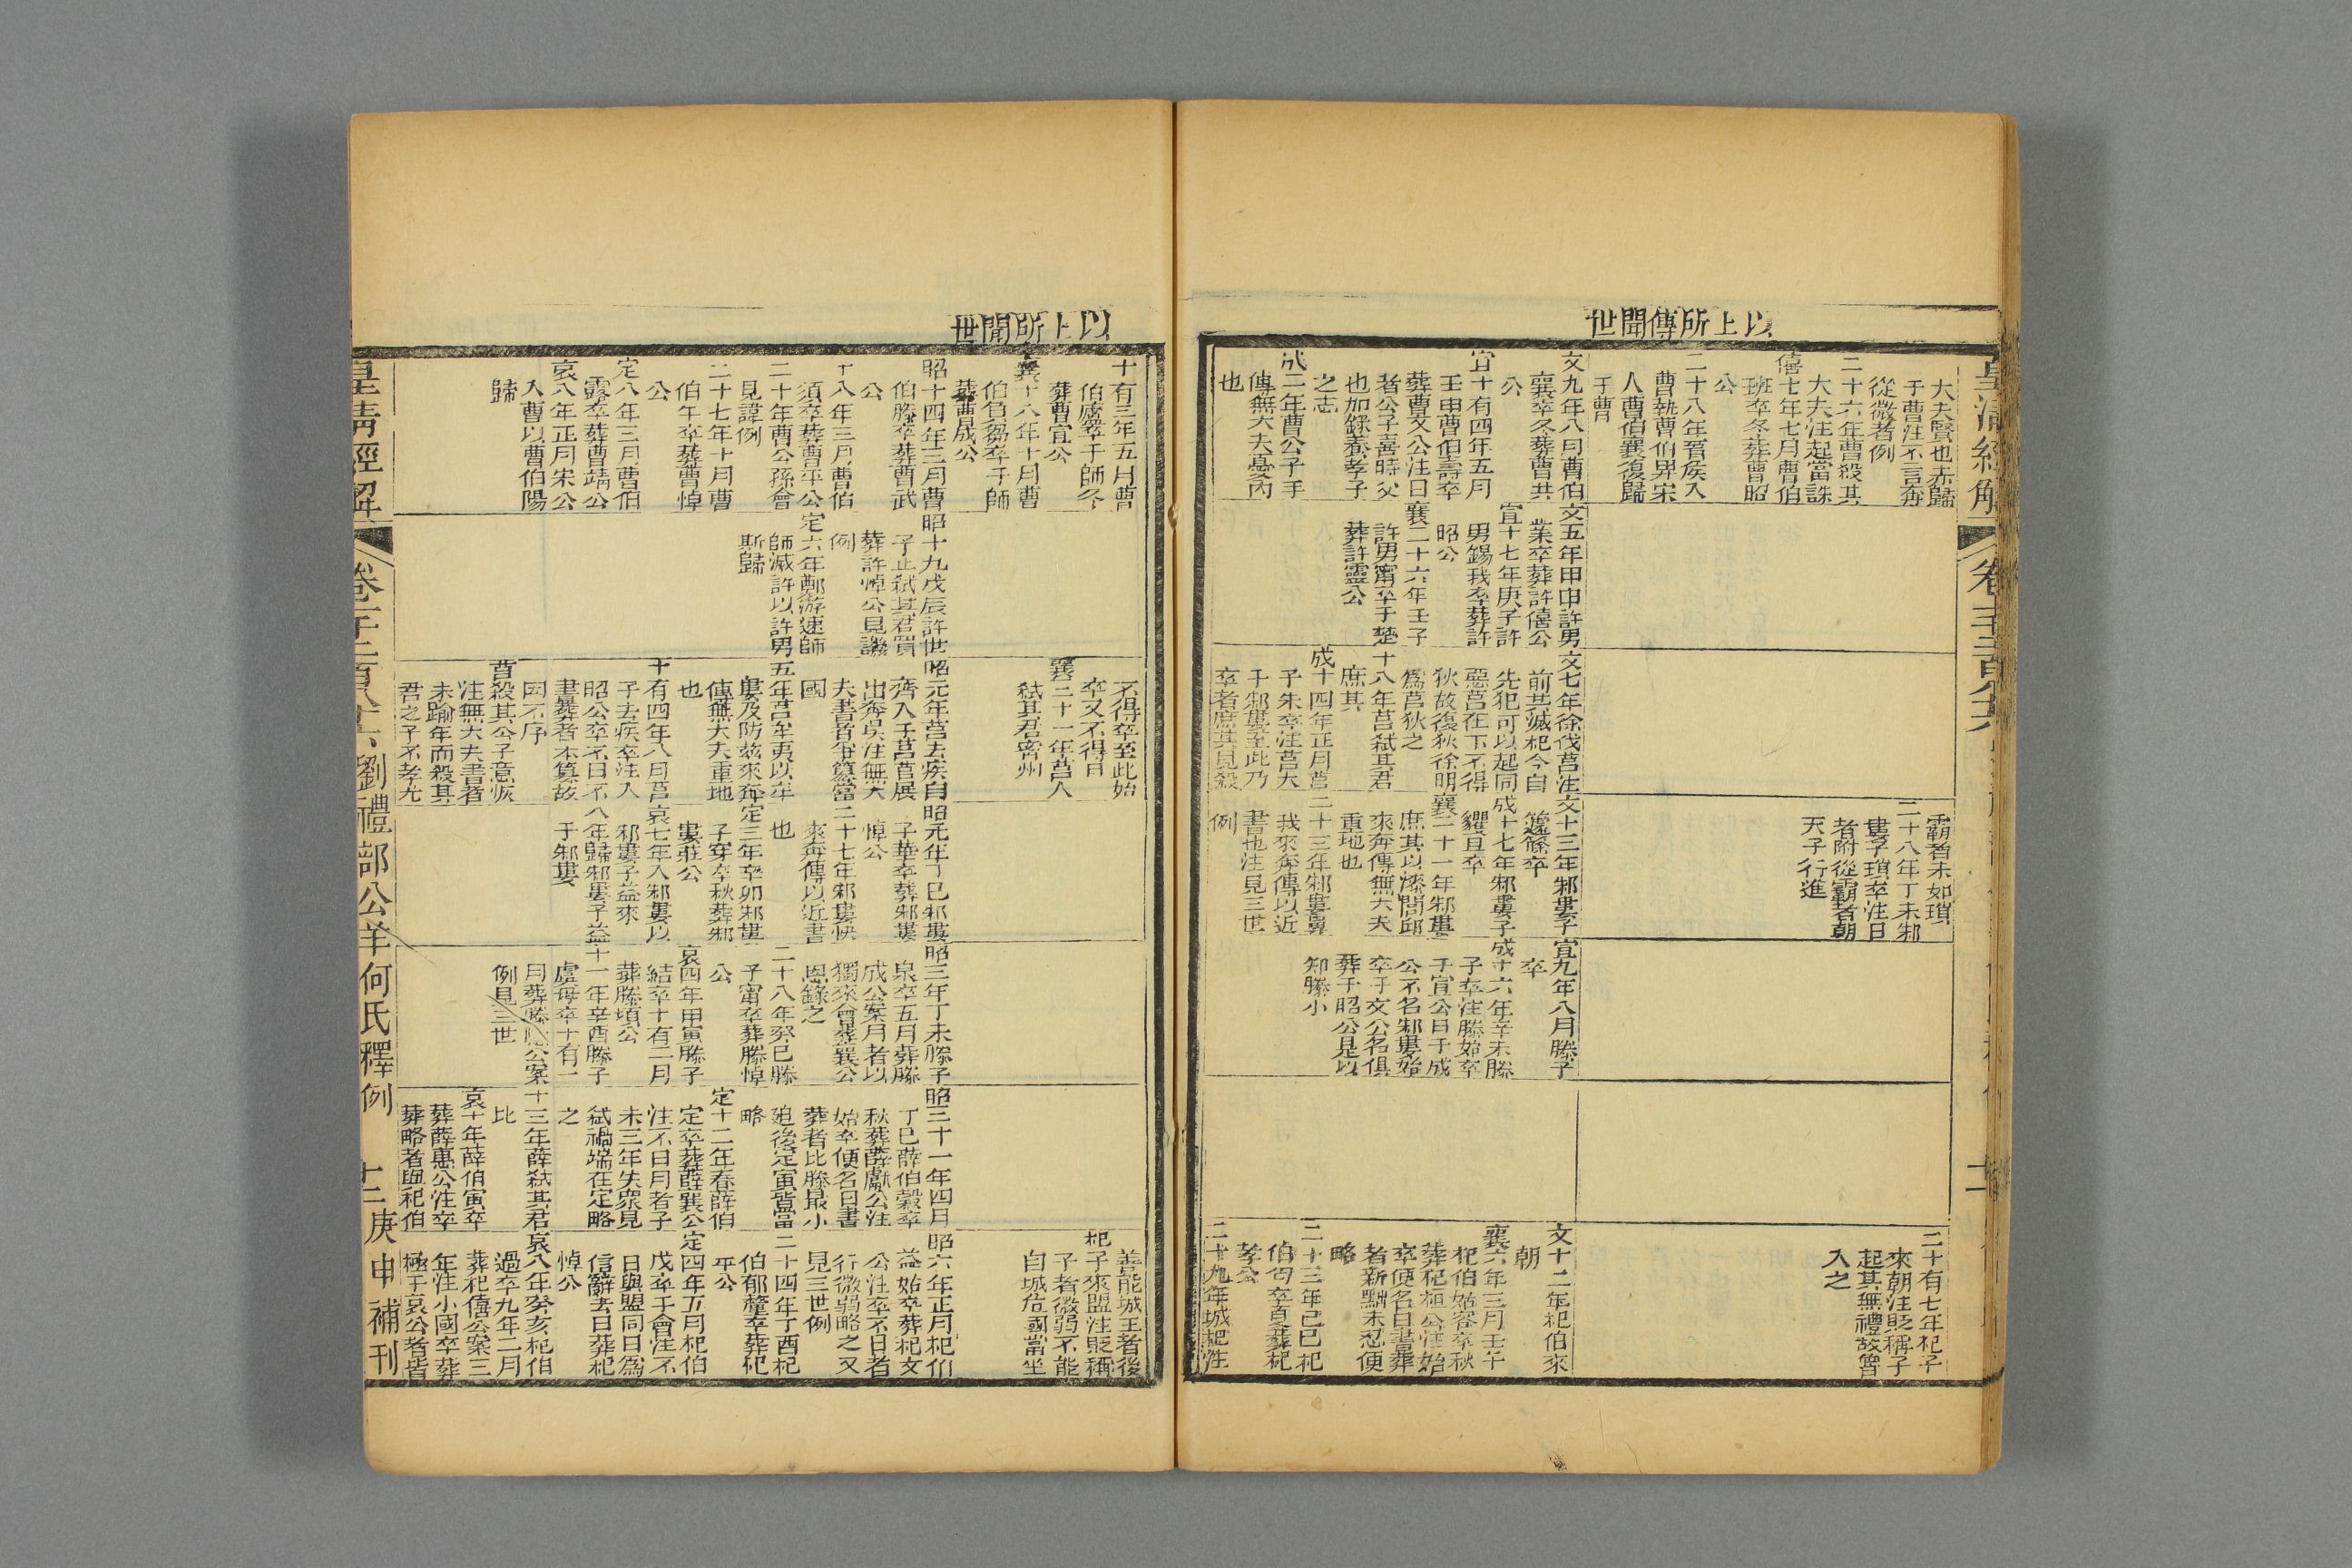 以上所傳聞世
大夫賢也赤歸
于曹注不言奔
從微者例
二十六年曹殺其
大夫注起當誅
僖七年七月曹伯
班卒冬葬曹昭
公
二十八年晉侯入
曹執曹伯畀宋
人曹伯襄復歸
于曹
文九年八月曹伯
襄卒冬葬曹共
公
宣十有四年五月
壬申曹伯壽卒
葬曹文公注日
者公子喜時父
也加錄養孝子
之志
成二年曹公子手
傳無大夫憂內
也
文五年甲申許男
業卒葬許僖公
宣十七年庚子許
男錫我卒葬許
昭公
襄二十六年壬子
許男甯卒于楚
葬許靈公
文七年徐伐莒注
前共滅杞今自
先犯可以起同
惡莒在下不得
狄故復狄徐明
爲莒狄之
十八年莒弒其君
庶其
成十四年正月莒
子朱卒注莒大
于邾婁至此乃
卒者庶其見殺
霸者未如瑣
二十八年丁未邾
婁子瑣卒注日
者附從霸者朝
天子行進
文十三年邾婁子
籧篨卒
成十七年邾婁子
貜且卒
襄二十一年邾婁
庶其以漆閭邱
來奔傳無大夫
重地也
二十三年邾婁鼻
我來奔傳以近
書也注見三世
例
宣九年八月滕子
卒
成十六年辛未滕
子卒注滕始卒
于宣公日于成
公不名邾婁始
卒于文公名俱
葬于昭公是以
知滕小
二十有七年杞子
來朝注貶稱子
起其無禮故魯
入之
文十二年杞伯來
朝
襄六年三月壬午
杞伯姑容卒秋
葬杞桓公注始
卒便名日書葬
者新黜未忍便
略
二十三年己巳杞
伯匄卒夏葬杞
孝公
二十九年城杞注
以上所聞世
十有三年五月曹
伯廬卒于師冬
葬曹宣公
襄十八年十月曹
伯負芻卒于師
葬曹成公
昭十四年三月曹
伯滕卒葬曹武
公
十八年三月曹伯
須卒葬曹平公
二十年曹公孫會
見諱例
二十七年十月曹
伯午卒葬曹悼
公
定八年三月曹伯
露卒葬曹靖公
哀八年正月宋公
入曹以曹伯陽
歸
昭十九戊辰許世
子止弒其君買
葬許悼公見譏
例
定六年鄭游速帥
師滅許以許男
斯歸
不得卒至此始
卒又不得日
襄二十一年莒人
弒其君密州
昭元年莒去疾自
齊入于莒莒展
出奔吳注無大
夫書者爭篡當
國
五年莒牟夷以牟
婁及防茲來奔
傳無大夫重地
也
十有四年八月莒
子去疾卒注入
昭公卒不日不
書葬者本篡故
因不序
莒殺其公子意恢
注無大夫書者
未踰年而殺其
君之子不孝尤
昭元年丁巳邾婁
子華卒葬邾婁
悼公
二十七年邾婁快
來奔傳以近書
也
定三年辛卯邾婁
子穿卒秋葬邾
婁莊公
哀七年入邾婁以
邾婁子益來
八年歸邾婁子益
于邾婁
昭三年丁未滕子
泉卒五月葬滕
成公案月者以
獨來會葬襄公
恩錄之
二十八年癸巳滕
子甯卒葬滕悼
公
哀四年甲寅滕子
結卒十有二月
葬滕頃公
十一年辛酉滕子
虞毋卒十有一
月葬滕隱公案
例見三世
昭三十一年四月
丁巳薛伯穀卒
秋葬薛獻公注
始卒便名日書
葬者比滕最小
迫後定寅皆當
略
定十二年春薛伯
定卒葬薛襄公
注不日月者子
未三年失眾見
弒禍端在定略
之
十三年薛弒其君
比
哀十年薛伯寅卒
葬薛惠公注卒
葬略者與杞伯
善能城王者後
杞子來盟注貶稱
子者微弱不能
自城危國當坐
昭六年正月杞伯
益姑卒葬杞文
公注卒不日者
行微弱略之又
見三世例
二十四年丁酉杞
伯郁釐卒葬杞
平公
定四年五月杞伯
戊卒于會注不
日與盟同日爲
信辭去日葬杞
悼公
哀八年癸亥杞伯
過卒九年二月
葬杞僖公案三
年注小國卒葬
極于哀公者皆
皇清經解
卷千二百八十六
劉禮部公羊何氏釋例
十二
庚申補刊